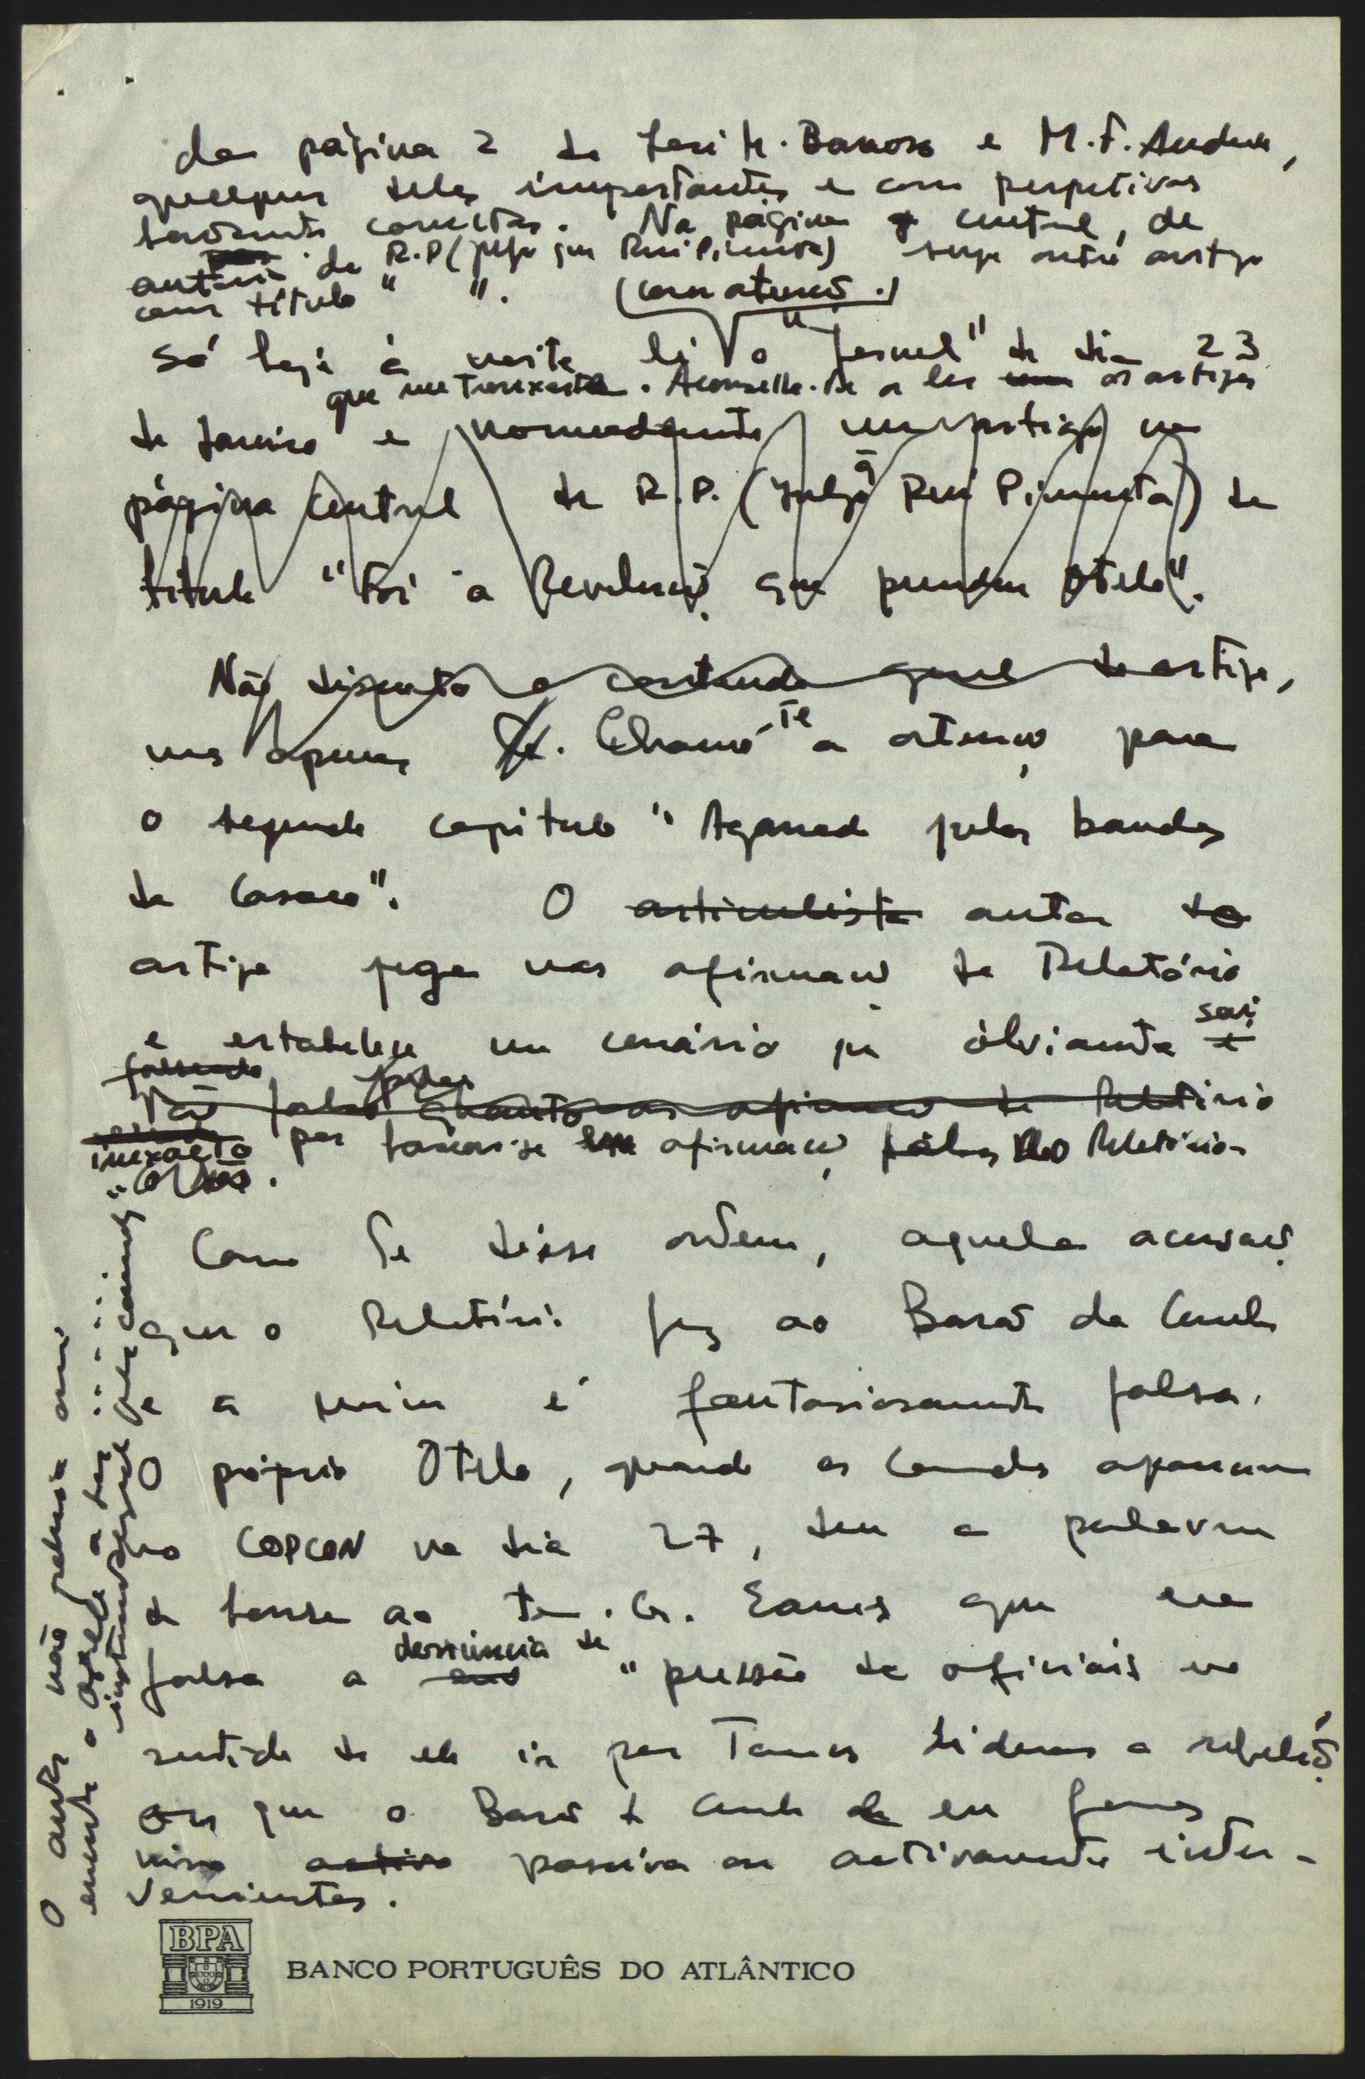 da página 2 de José H. Barroso e M.F. Andrade,
qualquer deles importantes e com perspetivas
bastante correctas. Na página central, de
autoria de R.P (julgo que Rui Pimenta) surge outro artigo
com título " ".
(com atenção.)
Só hoje à noite li o "Jornal" de dia 23
que me trouxeste. Aconselho-te a ler os artigos
de Janeiro e nomeadamente um artigo na
página central de R.P. (julgo q Rui Pimenta) de
título "Foi a Revolução que prendeu Otelo".
Não discuto o conteúdo geral do artigo,
mas apenas Chamo-te a atenção para
o segundo capítulo "Agarrado pelas bandas
do Casaco". O articulista autor do
artigo pega nas afirmações do Relatório
e estabelece um cenário que obviamente sai
falseado
tão falso quanto as afirmações do Relatório
inexacto por basear-se em afirmações falsas do Relatório
Como te disse ontem, aquela acusação
que o Relatório fez ao Barão da Cunha
e a mim é fantasiosamente falsa.
O próprio Otelo, quando os Comandos apareceram
no COPCON no dia 27, deu a palavra
de honra ao Ten. Cor. Eanes que era
falsa a denúncia de "pressão de oficiais no
sentido de ele ir para Tancos liderar a rebelião"
em que o Barão da Cunha e eu fomos
activo passiva ou activamente inter-
venientes.
O autor não poderia ouvir
BPA
1919
BANCO PORTUGUÊS DO ATLÂNTICO